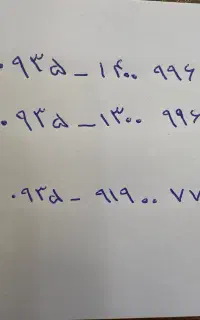 ۰۹۳۵ _ ۱۴۰۰ ۹۹۶
۰۹۳۵ _ ۱۳۰۰ ۹۹۶
۰۹۳۵ _ ۹۱۹۰۰ ۷۷